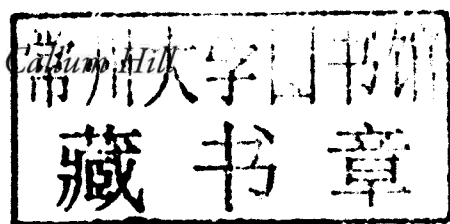 Callum Hill
常州大学图书馆
藏书章